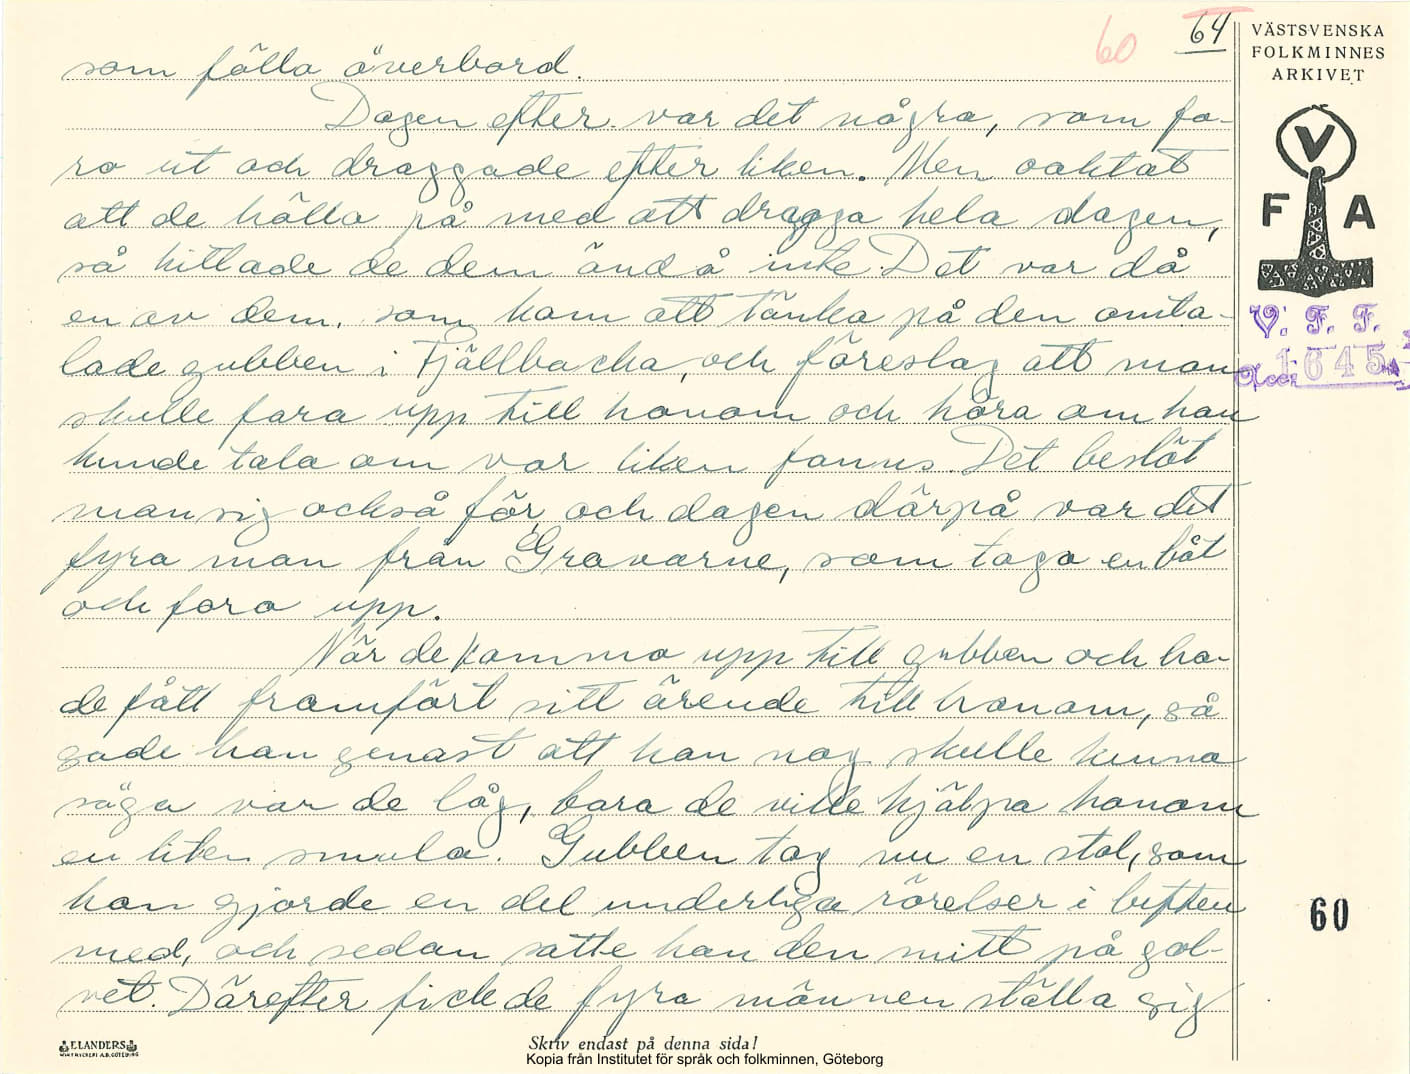 60 64
VÄSTSVENSKA
FOLKMINNES
ARKIVET
V
F A
V. F. F.
Acc. 1645
som fölla överbord.
Dagen efter var det några, som fo-
ro ut och draggade efter liken. Men oaktat
att de hölla på med att dragga hela dagen,
så hittade de dem ändå inte. Det var då
en av dem, som kom att tänka på den omta-
lade gubben i Fjällbacka, och föreslog att man
skulle fara upp till honom och höra om han
kunde tala om var liken fanns. Det beslöt
man sig också för, och dagen därpå var det
fyra man från Gravarne, som togo en båt
och foro upp.
När de kommo upp till gubben och ha-
de fått framfört sitt ärende till honom, så
sade han genast att han nog skulle kunna
säga var de låg, bara de ville hjälpa honom
en liten smula. Gubben tog nu en stol, som
han gjorde en del underliga rörelser i luften
med, och sedan satte han den mitt på gol-
vet. Därefter fick de fyra männen ställa sig
60
ELANDERS
BOKTRYCKERI A.B. GÖTEBORG
Skriv endast på denna sida!
Kopia från Institutet för språk och folkminnen, Göteborg